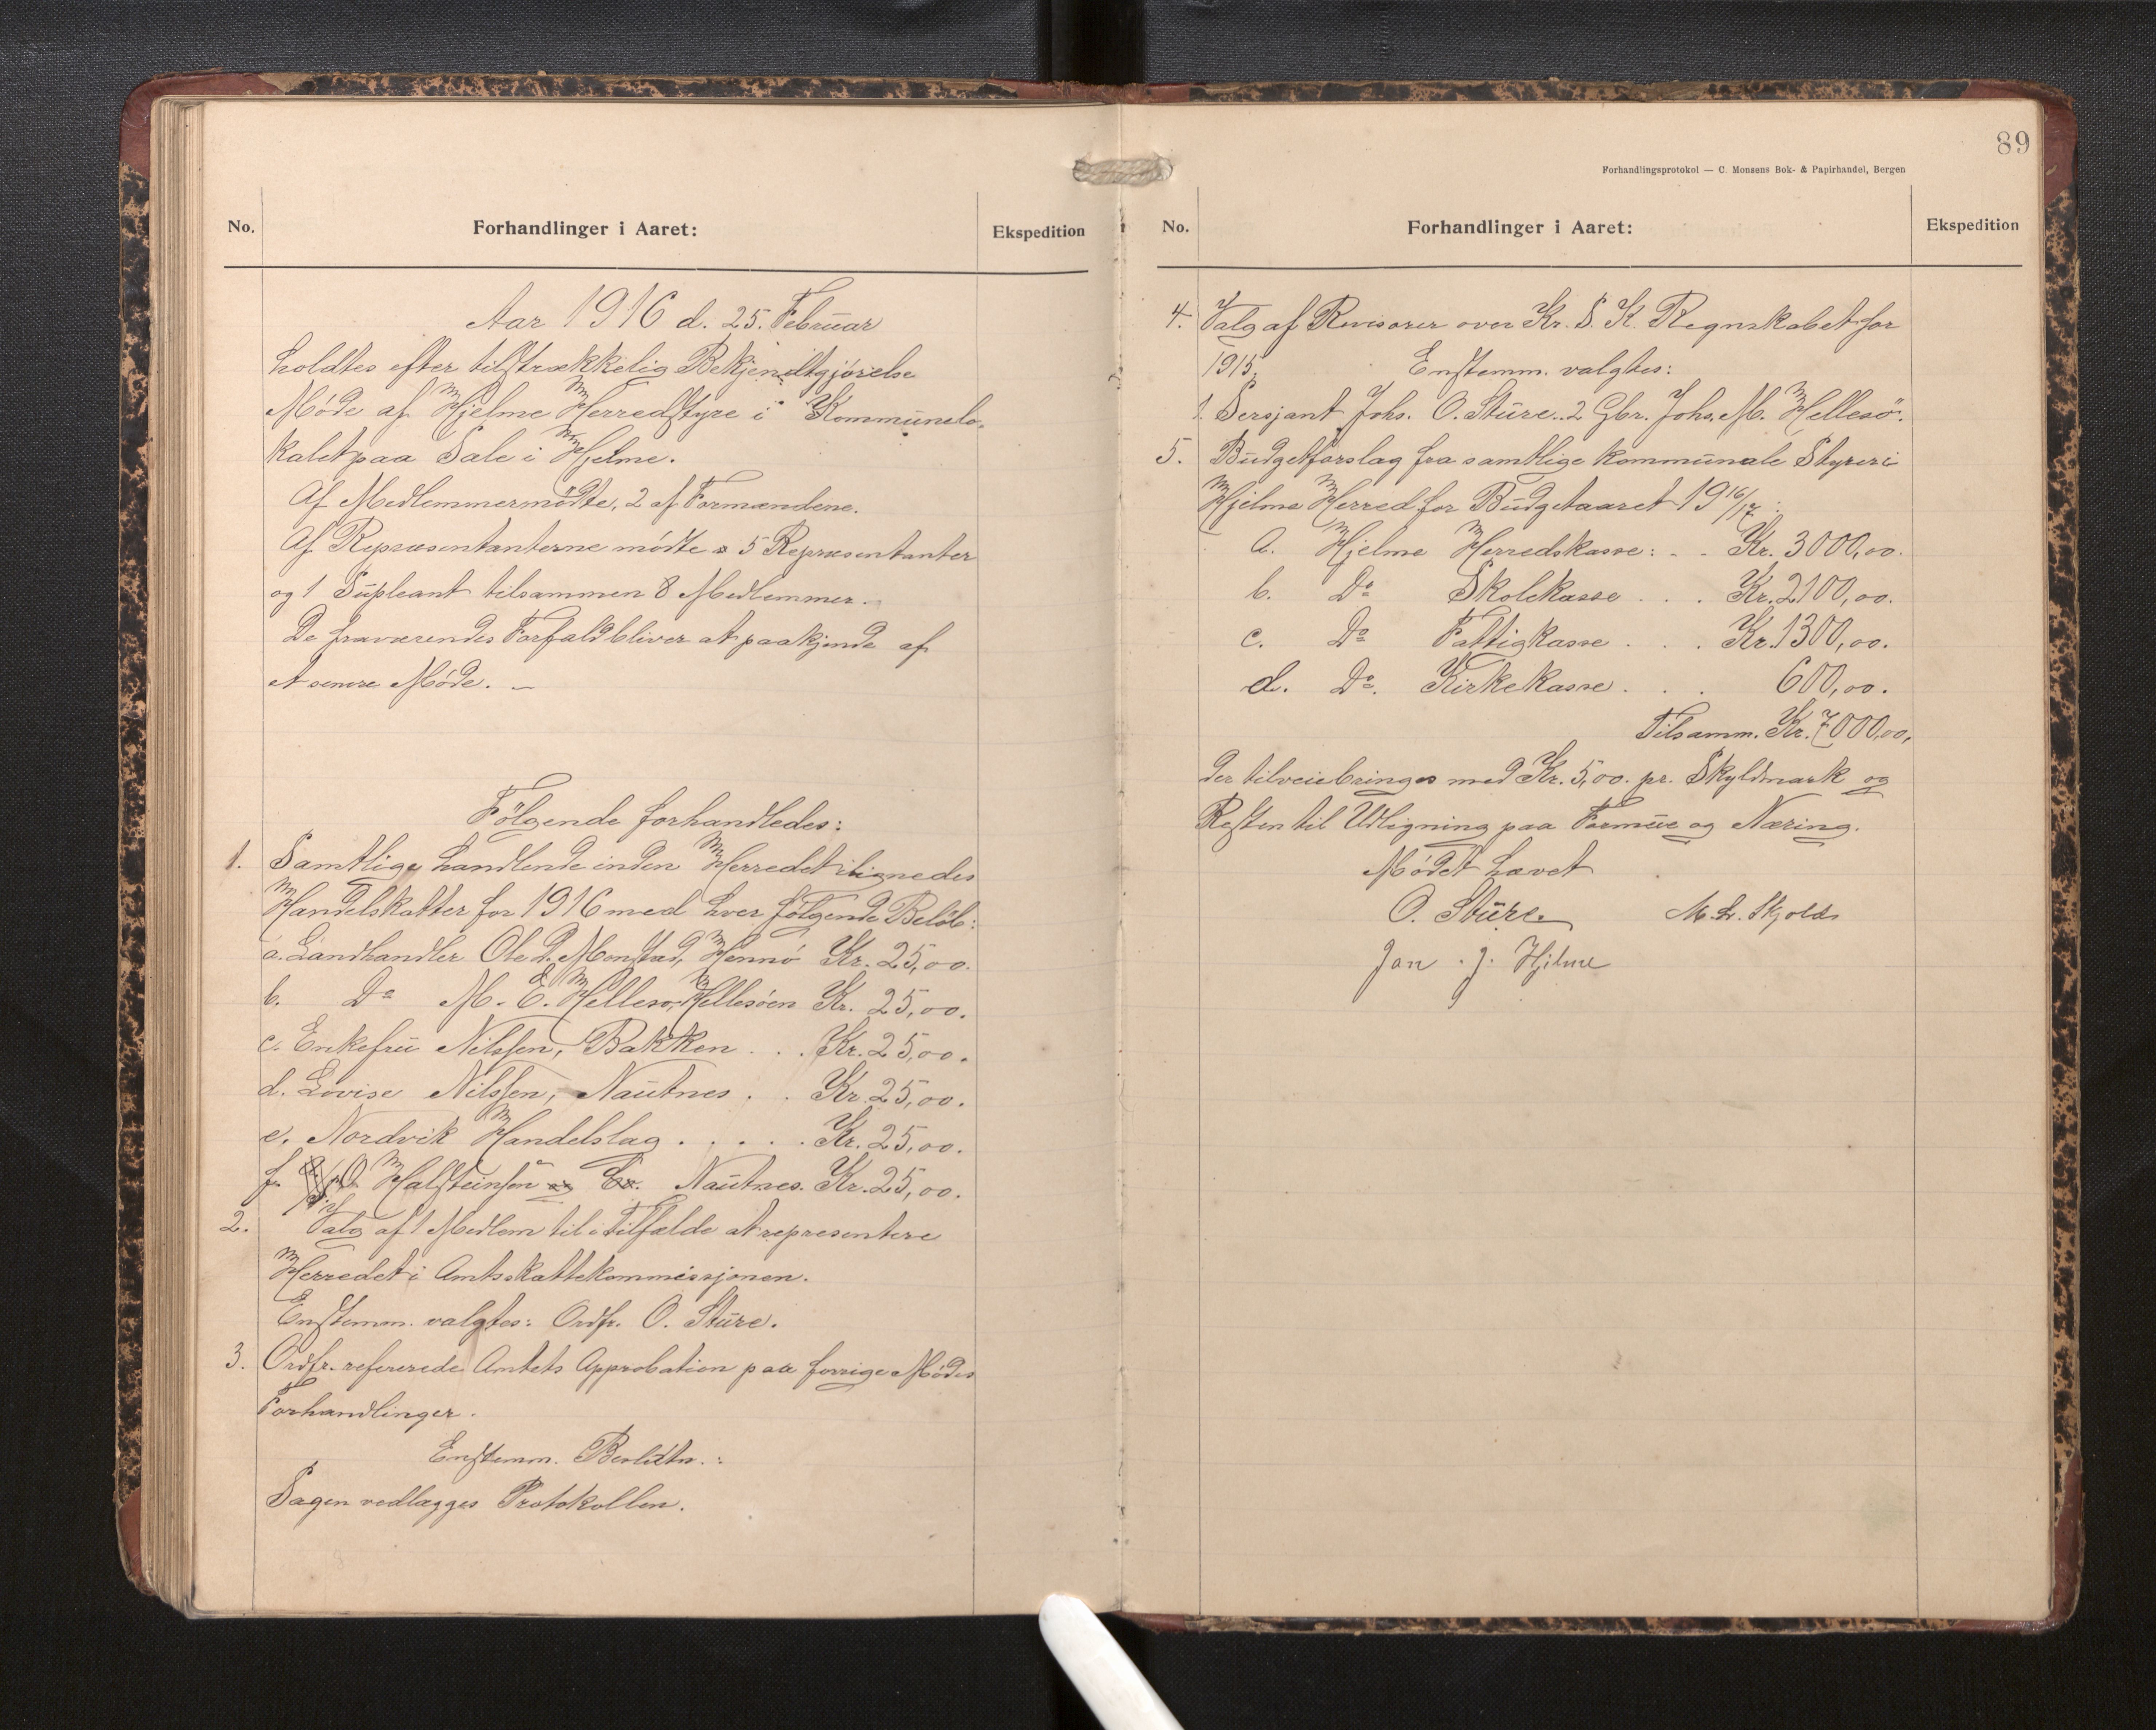 No.
Forhandlinger i Aaret:
Ekspedition
Aar 1916 d. 25. Februar
holdtes efter tilstrækkelig Bekjendtgjørelse
Møde af Hjelme Herredstyre i Kommunelo-
kalet paa Sale i Hjelme.
Af Medlemmer mødte, 2 af Formændene.
Af Repræsentanterne mødte 5 Repræsentanter
og 1 Supleant tilsammen 8 Medlemmer.
De fraværendes Forfald bliver at paakjende af
et senere Møde. —
Følgende forhandledes:
1. Samtlige handlende inden Herredet ilignedes
Handelskatter for 1916 med hver følgende Beløb:
a. Landhandler Ole D. Monstad, Hernø Kr. 25,00.
b. Do M. E. Hellesø, Hellesøen Kr. 25,00.
c. Enkefru Nilssen, Bakken . . . Kr. 25,00.
d. Lovise Nilssen, Nautnes . . Kr. 25,00.
e. Nordvik Handelslag . . . . . Kr. 25,00.
f. Halsteinsen Nautnes. Kr. 25,00.
2. Valg af 1 Medlem til i Tilfælde at representere
Herredet i Amtsskattekommissjonen.
Enstemm. valgtes: Ordfr. O. Sture.
3. Ordfr. refererede Amtets Approbation paa forrige Mødes
Forhandlinger.
Enstemm. Besldtn.:
Sagen vedlægges Protokollen.
89
Forhandlingsprotokol — C. Monsens Bok- & Papirhandel, Bergen
No.
Forhandlinger i Aaret:
Ekspedition
4. Valg af Revisorer over Kr. S. K. Regnskabet for
1915. Enstemm. valgtes:
1. Sersjant Johs. O. Sture. 2 Gbr. Johs. M. Hellesö.
5. Budgetforslag fra samtlige kommunale Styrer i
Hjelme Herred for Budgetaaret 1916/17:
a. Hjelme Herredskasse: - - Kr. 3000,00.
b. Do Skolekasse . . . Kr. 2100,00.
c. Do Fattigkasse . . . Kr. 1300,00.
d. Do. Kirkekasse . . . 600,00.
Tilsamm. Kr. 7000,00,
der tilveiebringes med Kr. 5,00. pr. Skyldmark og
Resten til Udligning paa Formue og Næring.
Mødet hævet
O. Sture. M. L. Skjold
Jan . J. Hjelme